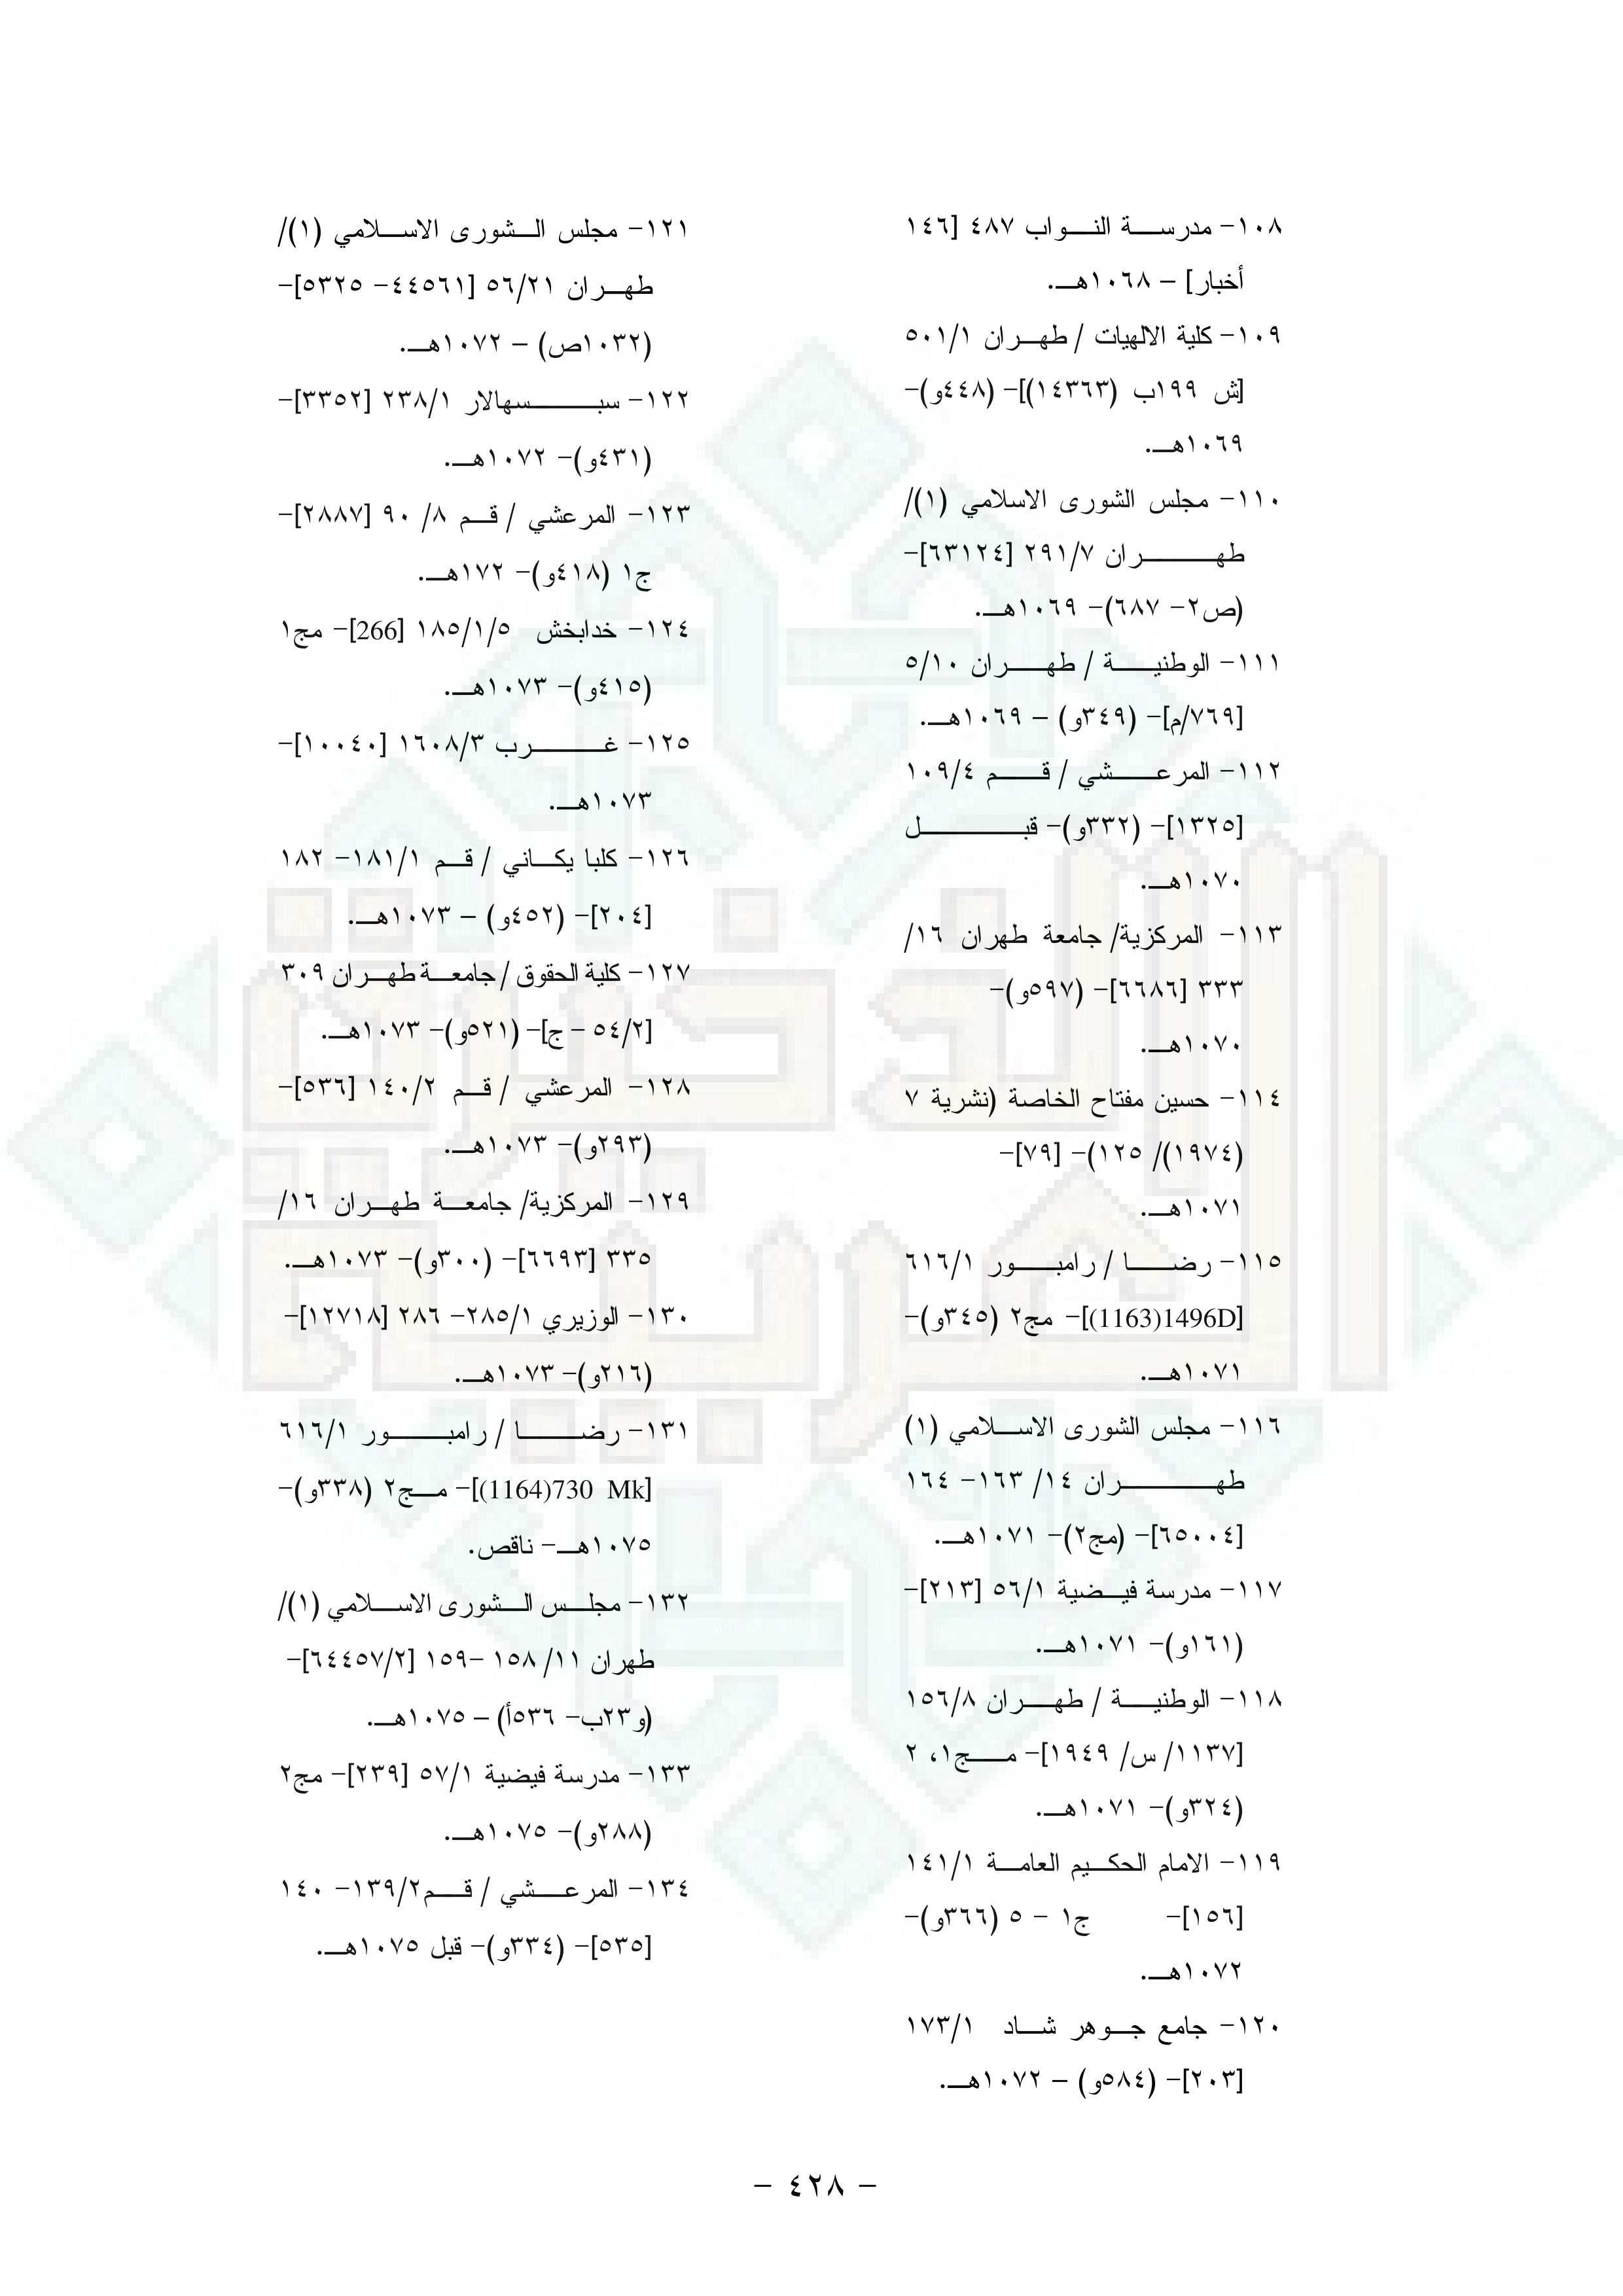 ١٠٨- مدرسة النواب ٤٨٧ [١٤٦
أخبار] – ١٠٦٨هـ.
١٠٩- كلية الالهيات / طهران ٥٠١/١
[ش ١٩٩ب (١٤٣٦٣)]- (٤٤٨و)-
١٠٦٩هـ.
١١٠- مجلس الشورى الاسلامي (١)/
طهران ٢٩١/٧ [٦٣١٢٤]-
(ص٢- ٦٨٧)- ١٠٦٩هـ.
١١١- الوطنية / طهران ٥/١٠
[٧٦٩/م]- (٣٤٩و) – ١٠٦٩هـ.
١١٢- المرعشي / قم ١٠٩/٤
[١٣٢٥]- (٣٣٢و)- قبل
١٠٧٠هـ.
١١٣- المركزية/ جامعة طهران ١٦/
٣٣٣ [٦٦٨٦]- (٥٩٧و)-
١٠٧٠هـ.
١١٤- حسين مفتاح الخاصة (نشرية ٧
(١٩٧٤)/ ١٢٥)- [٧٩]-
١٠٧١هـ.
١١٥- رضا / رامبور ٦١٦/١
[(1163)1496D]- مج٢ (٣٤٥و)-
١٠٧١هـ.
١١٦- مجلس الشورى الاسلامي (١)
طهران ١٤/ ١٦٣- ١٦٤
[٦٥٠٠٤]- (مج٢)- ١٠٧١هـ.
١١٧- مدرسة فيضية ٥٦/١ [٢١٣]-
(١٦١و)- ١٠٧١هـ.
١١٨- الوطنية / طهران ١٥٦/٨
[١١٣٧/ س/ ١٩٤٩]- مج١، ٢
(٣٢٤و)- ١٠٧١هـ.
١١٩- الامام الحكيم العامة ١٤١/١
[١٥٦]- ج١ - ٥ (٣٦٦و)-
١٠٧٢هـ.
١٢٠- جامع جوهر شاد ١٧٣/١
[٢٠٣]- (٥٨٤و) – ١٠٧٢هـ.
١٢١- مجلس الشورى الاسلامي (١)/
طهران ٥٦/٢١ [٤٤٥٦١- ٥٣٢٥]-
(١٠٣٢ص) – ١٠٧٢هـ.
١٢٢- سبسهالار ٢٣٨/١ [٣٣٥٢]-
(٤٣١و)- ١٠٧٢هـ.
١٢٣- المرعشي / قم ٨/ ٩٠ [٢٨٨٧]-
ج١ (٤١٨و)- ١٧٢هـ.
١٢٤- خدابخش ١٨٥/١/٥ [266]- مج١
(٤١٥و)- ١٠٧٣هـ.
١٢٥- غرب ١٦٠٨/٣ [١٠٠٤٠]-
١٠٧٣هـ.
١٢٦- كلبا يكاني / قم ١٨١/١- ١٨٢
[٢٠٤]- (٤٥٢و) – ١٠٧٣هـ.
١٢٧- كلية الحقوق / جامعة طهران ٣٠٩
[٥٤/٢ - ج]- (٥٢١و)- ١٠٧٣هـ.
١٢٨- المرعشي / قم ١٤٠/٢ [٥٣٦]-
(٢٩٣و)- ١٠٧٣هـ.
١٢٩- المركزية/ جامعة طهران ١٦/
٣٣٥ [٦٦٩٣]- (٣٠٠و)- ١٠٧٣هـ.
١٣٠- الوزيري ٢٨٥/١- ٢٨٦ [١٢٧١٨]-
(٢١٦و)- ١٠٧٣هـ.
١٣١- رضا / رامبور ٦١٦/١
[(1164)730 Mk]- مج٢ (٣٣٨و)-
١٠٧٥هـ- ناقص.
١٣٢- مجلس الشورى الاسلامي (١)/
طهران ١١/ ١٥٨ -١٥٩ [٦٤٤٥٧/٢]-
(و٢٣ب- ٥٣٦أ) – ١٠٧٥هـ.
١٣٣- مدرسة فيضية ٥٧/١ [٢٣٩]- مج٢
(٢٨٨و)- ١٠٧٥هـ.
١٣٤- المرعشي / قم١٣٩/٢- ١٤٠
[٥٣٥]- (٣٣٤و)- قبل ١٠٧٥هـ.
- ٤٢٨ -